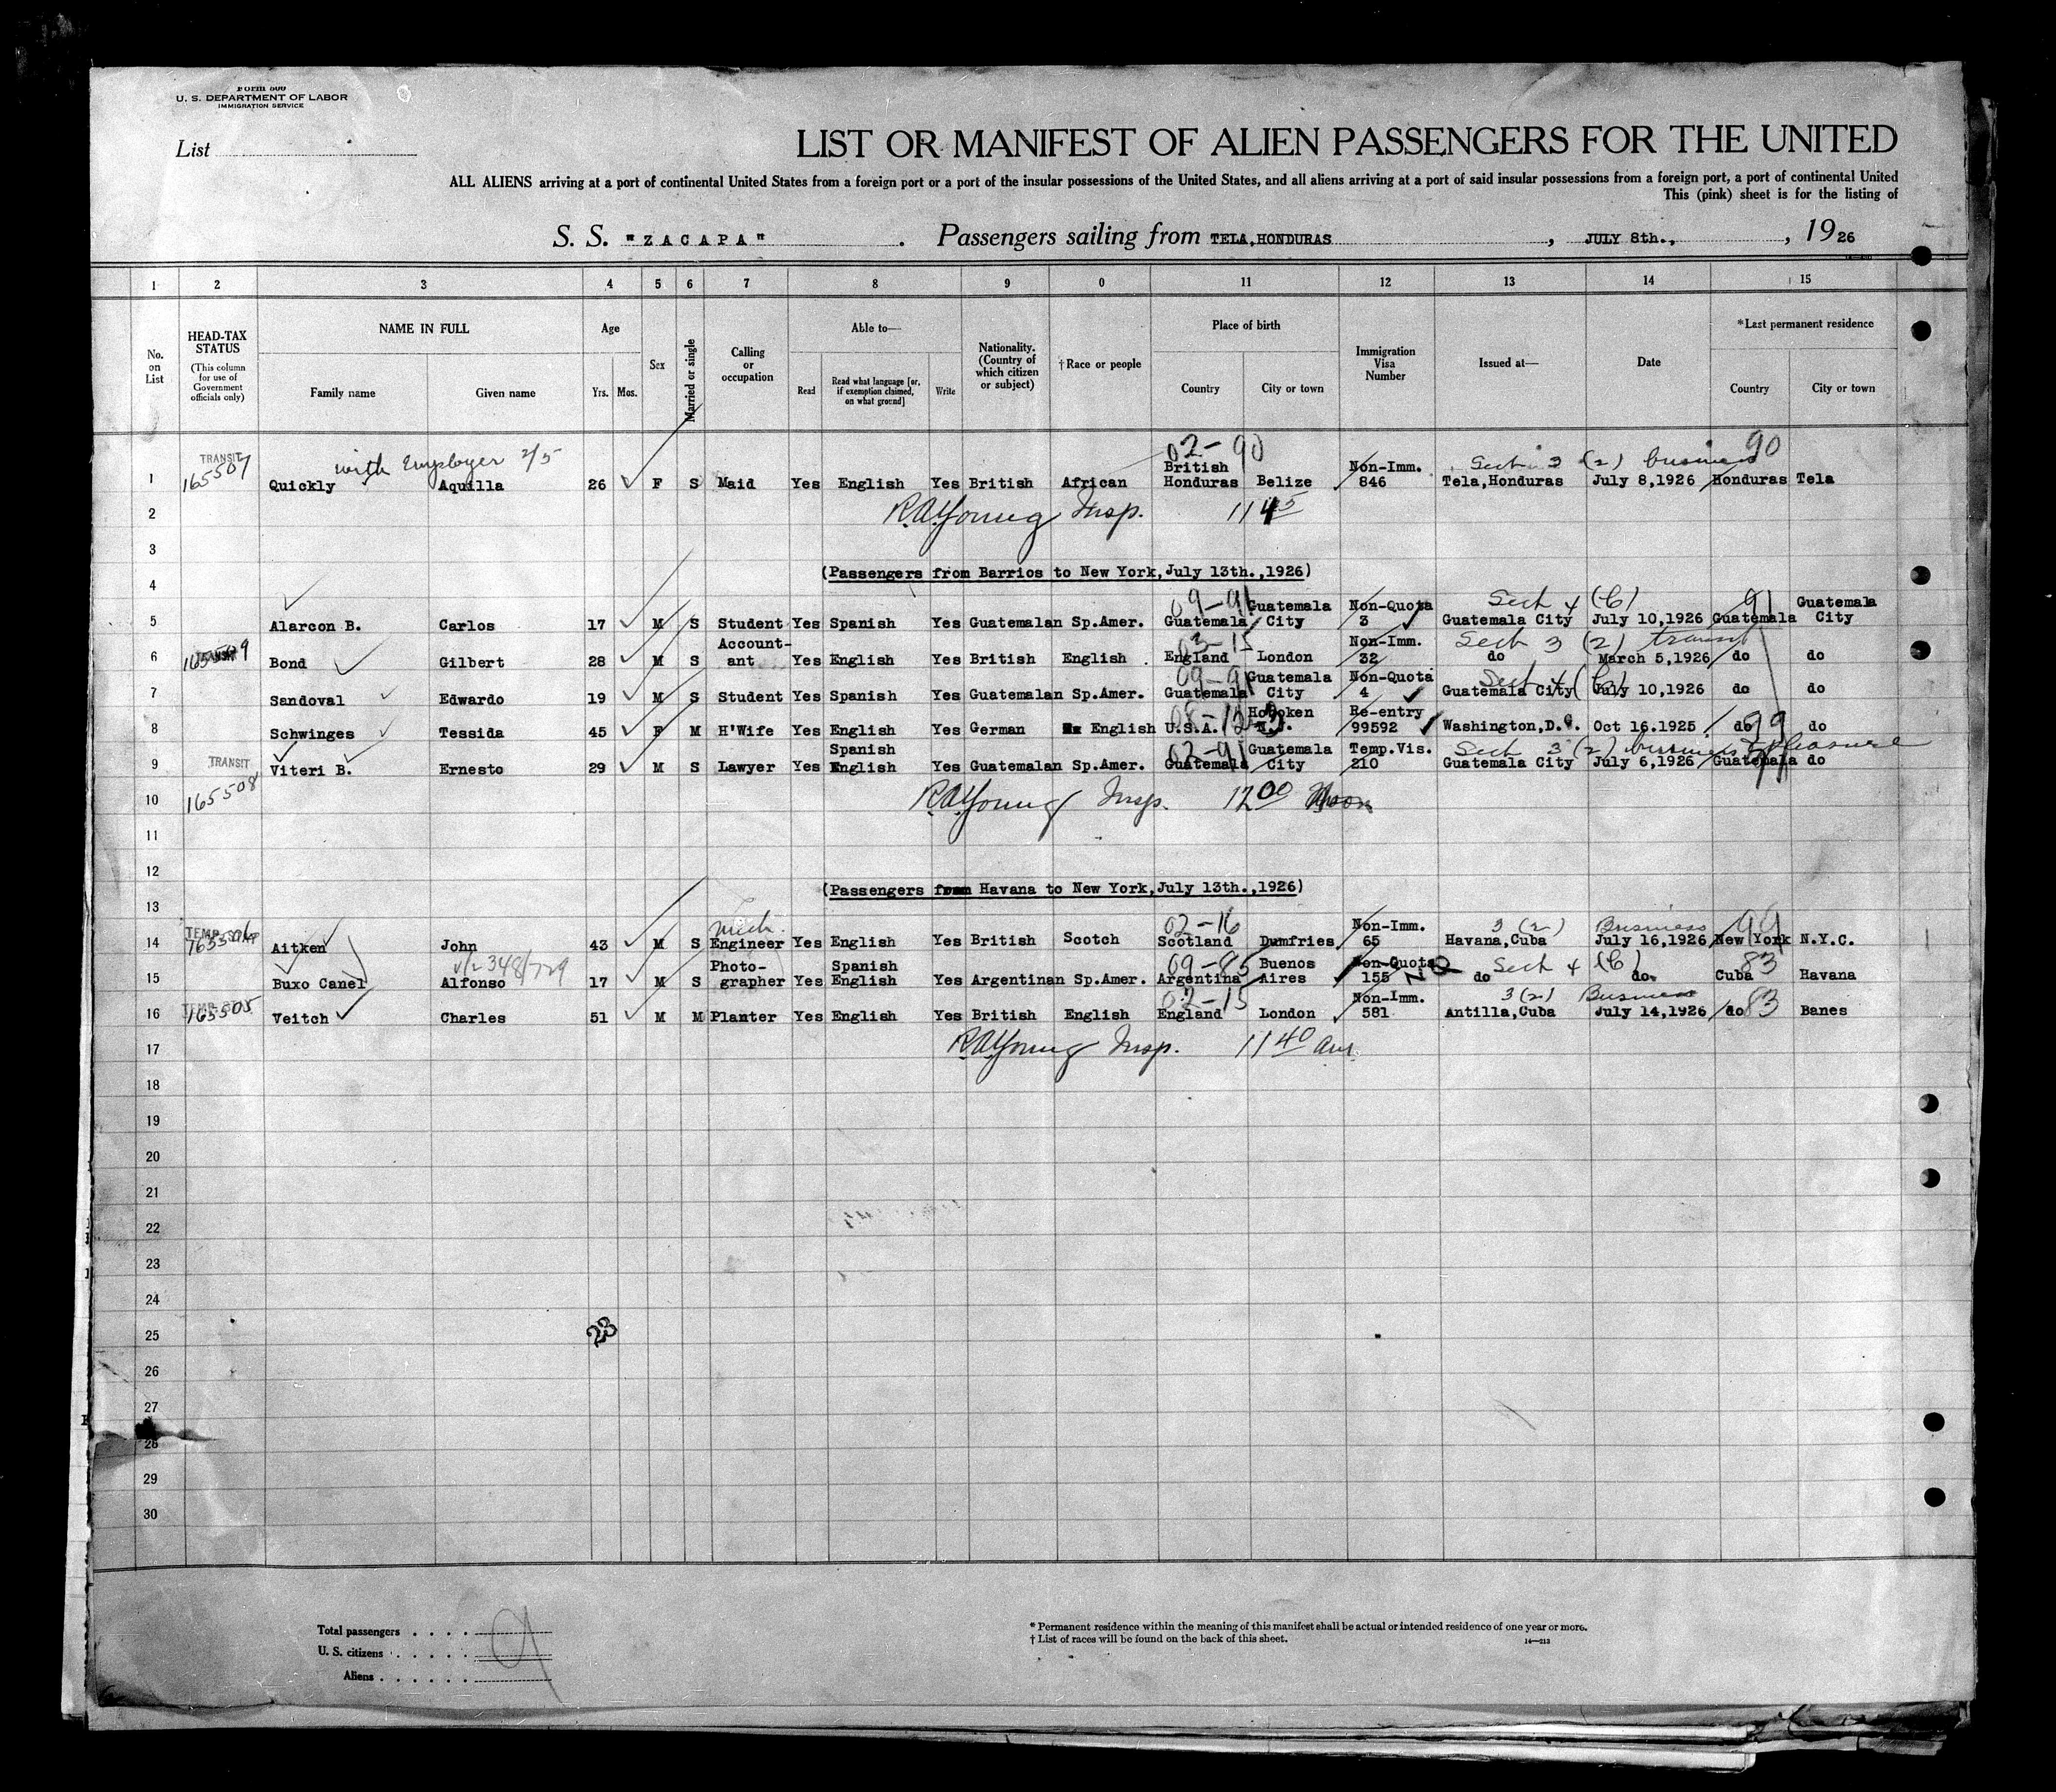 Form 500
U. S. DEPARTMENT OF LABOR
IMMIGRATION SERVICE
List
LIST OR MANIFEST OF ALIEN PASSENGERS FOR THE UNITED
ALL ALIENS arriving at a port of continental United States from a foreign port or a port of the insular possessions of the United States, and all aliens arriving at a port of said insular possessions from a foreign port, a port of continental United
This (pink) sheet is for the listing of
S. S. "ZACAPA" . Passengers sailing from TELA,HONDURAS , JULY 8th., , 1926
1 2 3 4 5 6 7 8 9 0 11 12 13 14 15
No. on List
HEAD-TAX STATUS (This column for use of Government officials only)
NAME IN FULL
Family name Given name
Age
Yrs. Mos.
Sex
Married or single
Calling or occupation
Able to—
Read Read what language [or, if exemption claimed, on what ground] Write
Nationality. (Country of which citizen or subject)
†Race or people
Place of birth
Country City or town
Immigration Visa Number
Issued at—
Date
*Last permanent residence
Country City or town
TRANSIT with Employer 2/5 02-90 Sect 3 (2) business 90
1 165507 Quickly Aquilla 26 F S Maid Yes English Yes British African British Honduras Belize Non-Imm. 846 Tela,Honduras July 8,1926 Honduras Tela
2 R.A.Young Insp. 11 45
3
4 (Passengers from Barrios to New York,July 13th.,1926)
09-91 Sect 4 (b) 91
5 Alarcon B. Carlos 17 M S Student Yes Spanish Yes Guatemalan Sp.Amer. Guatemala Guatemala City Non-Quota 3 Guatemala City July 10,1926 Guatemala Guatemala City
03-15 Sect 3 (2) transit
6 165509 Bond Gilbert 28 M S Accountant Yes English Yes British English England London Non-Imm. 32 do March 5,1926 do do
09-91 Sect 4
7 Sandoval Edwardo 19 M S Student Yes Spanish Yes Guatemalan Sp.Amer. Guatemala Guatemala City Non-Quota 4 Guatemala City July 10,1926 do do
8 Schwinges Tessida 45 F M H'Wife Yes English Yes German English U.S.A. Hoboken N.J. Re-entry 99592 Washington,D.C. Oct 16.1925 do 99 do
TRANSIT 02-91 Sect 3 (2) business & pleasure
9 Viteri B. Ernesto 29 M S Lawyer Yes Spanish English Yes Guatemalan Sp.Amer. Guatemala Guatemala City Temp.Vis. 210 Guatemala City July 6,1926 Guatemala do
10 165508 R.A.Young Insp. 12 00 Noon
11
12
(Passengers from Havana to New York,July 13th.,1926)
13
Mech. 02-16 3 (2) Business 99
14 Aitken John 43 M S Engineer Yes English Yes British Scotch Scotland Dumfries Non-Imm. 65 Havana,Cuba July 16,1926 New York N.Y.C.
09-85 Sect 4 (b) 83
15 Buxo Canel Alfonso 17 M S Photographer Yes Spanish English Yes Argentinan Sp.Amer. Argentina Buenos Aires Non-Quota 155 do do. Cuba Havana
02-15 3 (2) Business
16 165505 Veitch Charles 51 M M Planter Yes English Yes British English England London Non-Imm. 581 Antilla,Cuba July 14,1926 do 83 Banes
17 R.A.Young Insp. 11 40 am.
18
19
20
21
22
23
24
25 23
26
27
28
29
30
Total passengers . . . . 9
U. S. citizens . . . . .
Aliens . . . . . .
* Permanent residence within the meaning of this manifest shall be actual or intended residence of one year or more.
† List of races will be found on the back of this sheet. 14—213